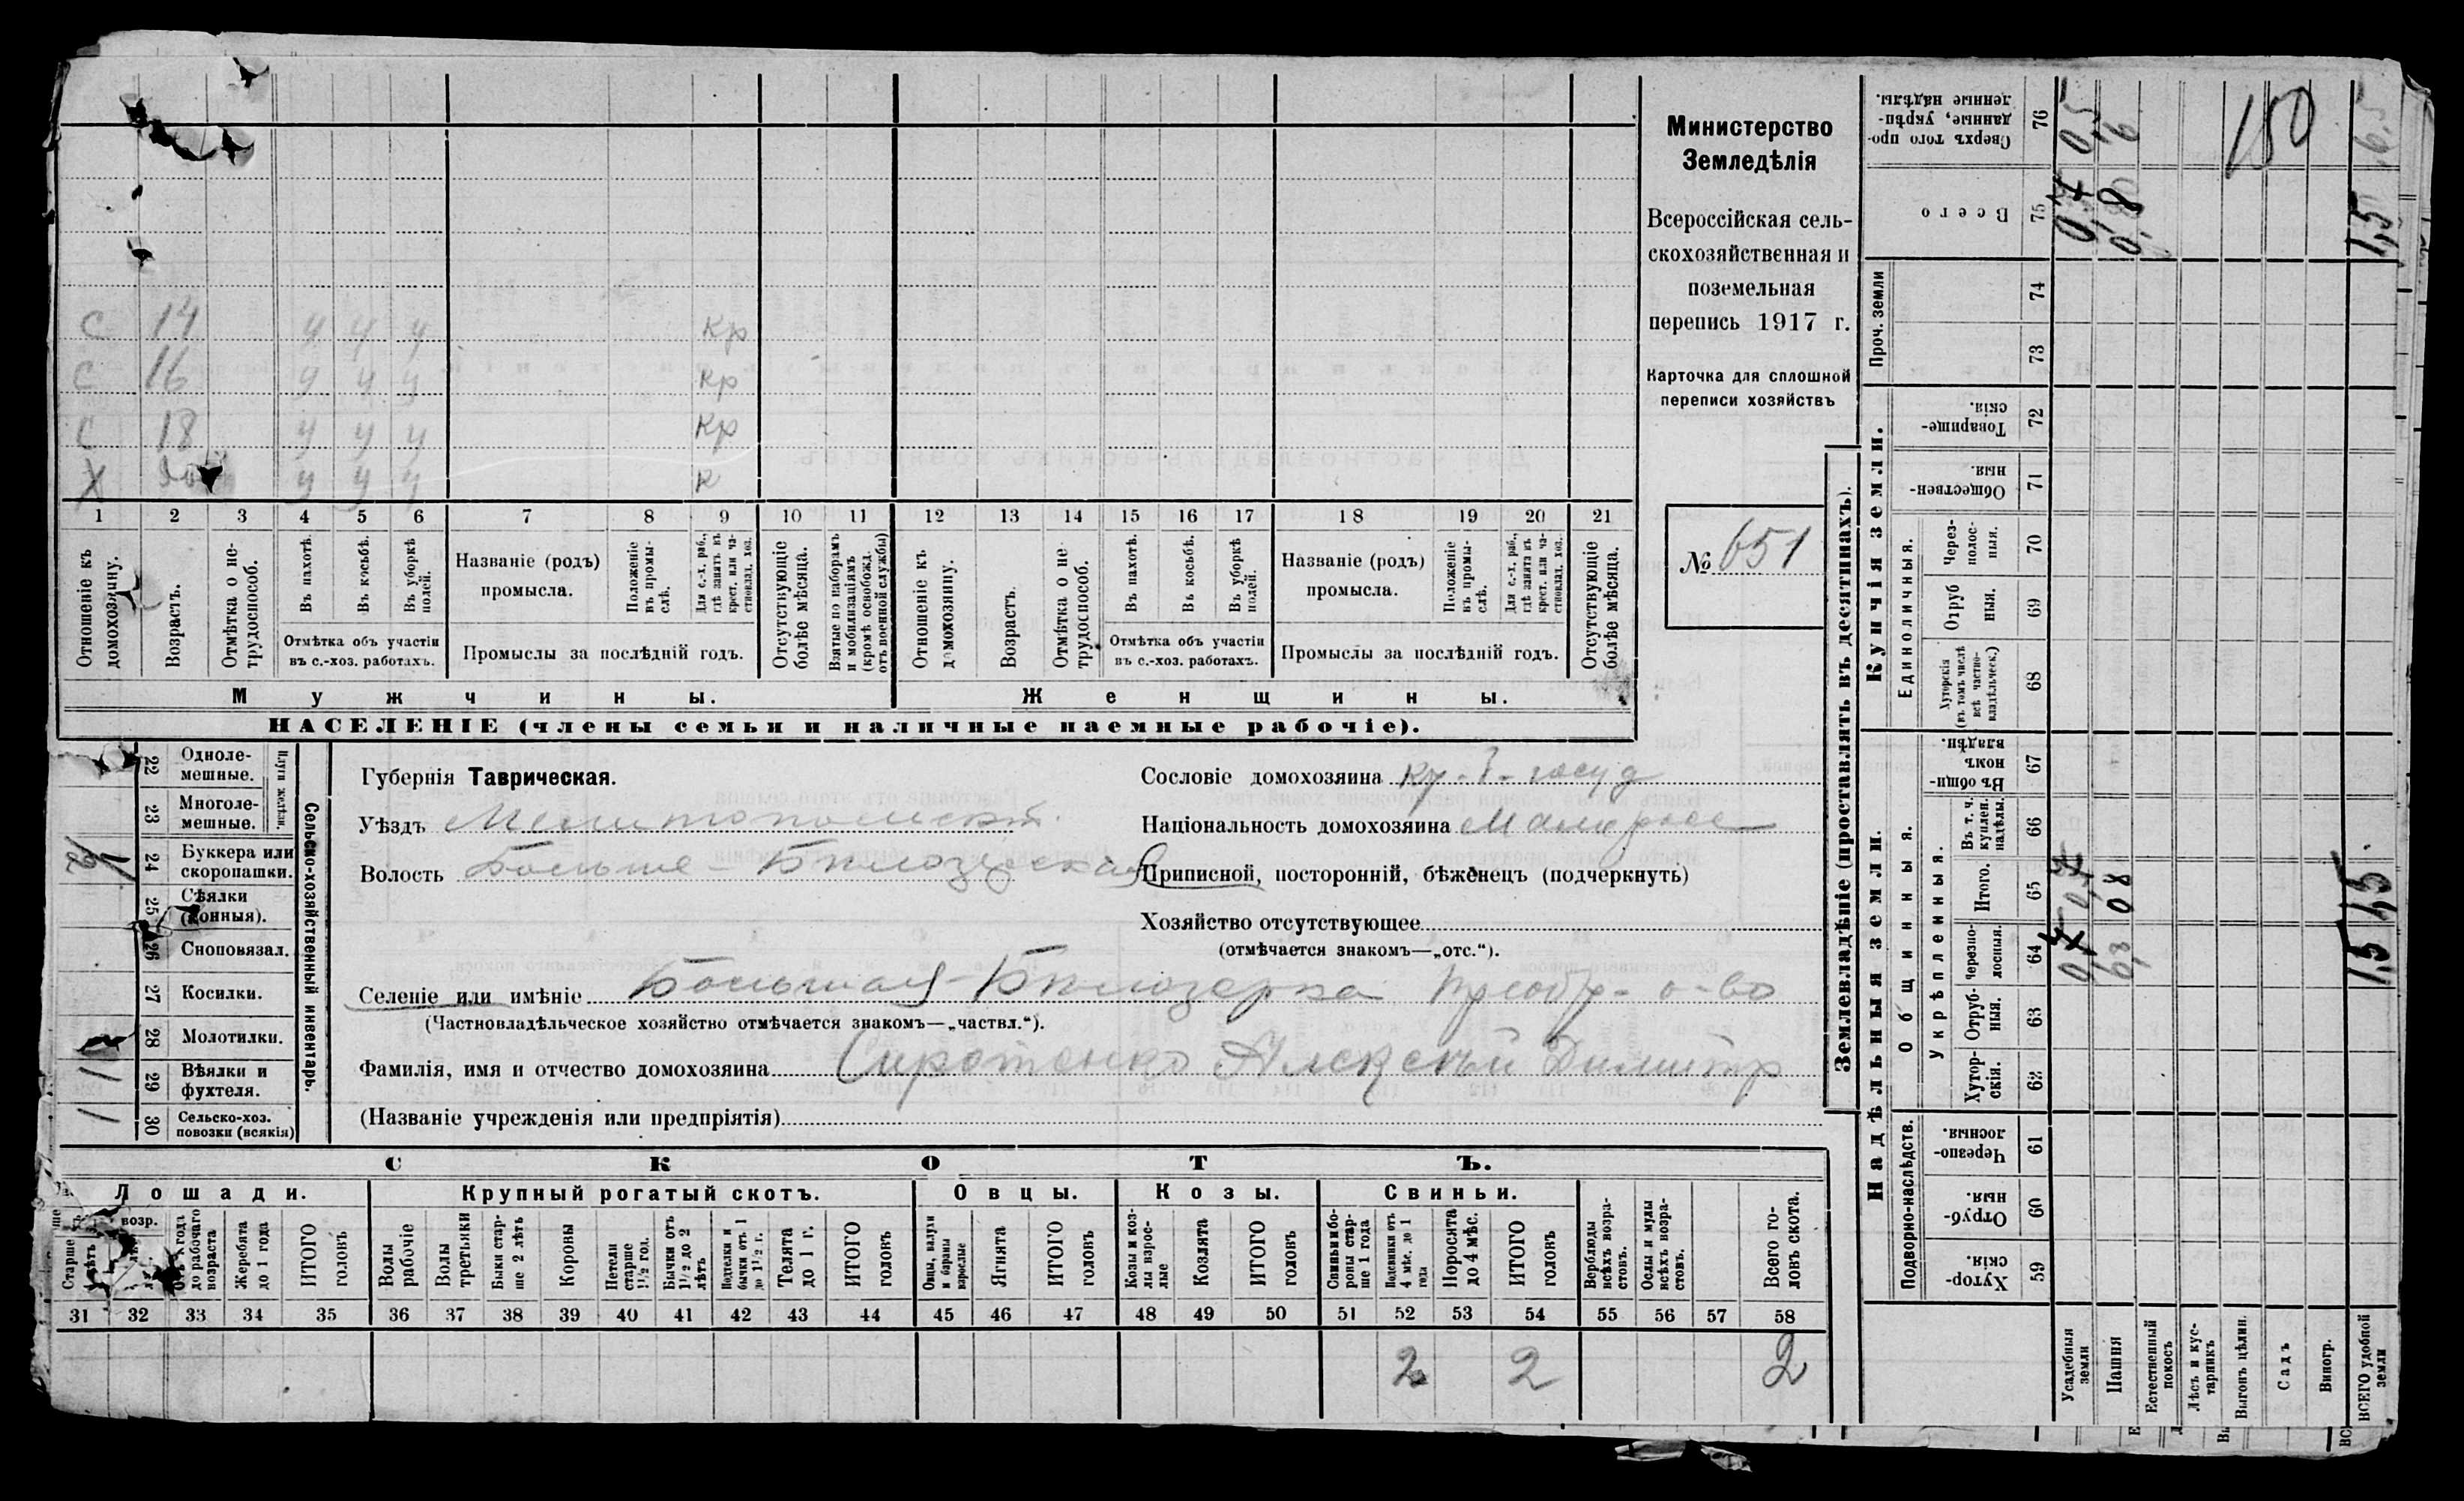 С 14 у у у кр
С 16 у у у кр
С 18 у у у кр
Х у у у к
1 2 3 4 5 6 7 8 9 10 11 12 13 14 15 16 17 18 19 20 21
Отношеніе къ домохозяину.
Возрастъ.
Отмѣтка о не-трудоспособ.
Въ пахотѣ.
Въ косьбѣ.
Въ уборкѣ полей.
Отмѣтка объ участіи
въ с.-хоз. работахъ.
Названіе (родъ)
промысла.
Положеніе въ промы-слѣ.
Для с.-х. раб., гдѣ занятъ въ крест. или ча-стновлад. хоз.
Промыслы за послѣдній годъ.
Отсутствующіе болѣе мѣсяца.
Взятые по наборамъ и мобилизаціямъ (кромѣ освобожд. отъ военной службы)
Отношеніе къ домохозяину.
Возрастъ.
Отмѣтка о не-трудоспособ.
Въ пахотѣ.
Въ косьбѣ.
Въ уборкѣ полей.
Отмѣтка объ участіи
въ с.-хоз. работахъ.
Названіе (родъ)
промысла.
Положеніе въ промы-слѣ.
Для с.-х. раб., гдѣ занятъ въ крест. или ча-стновлад. хоз.
Промыслы за послѣдній годъ.
Отсутствующіе болѣе мѣсяца.
Мужчины.
Женщины.
НАСЕЛЕНІЕ (члены семьи и наличные наемные рабочіе).
Министерство
Земледѣлія
Всероссійская сель-
скохозяйственная и
поземельная
перепись 1917 г.
Карточка для сплошной
переписи хозяйствъ
№ 651
Сельско-хозяйственный инвентарь.
Плуги желѣзн.
22 Одноле-мешные.
23 Многоле-мешные.
24 Буккера или скоропашки.
25 Сѣялки (конныя).
26 Сноповязал.
27 Косилки.
28 Молотилки.
29 Вѣялки и фухтеля.
30 Сельско-хоз. повозки (всякія)
Губернія Таврическая.
Уѣздъ Мелитопольскій
Волость Больше-Бѣлозерская
Сословіе домохозяина кр.
Національность домохозяина Малоросс
Приписной, посторонній, бѣженецъ (подчеркнуть)
Хозяйство отсутствующее
(отмѣчается знакомъ—„отс.“).
Селеніе или имѣніе Большая-Бѣлозерка Преобр- о-во
(Частновладѣльческое хозяйство отмѣчается знакомъ—„частвл.“).
Фамилія, имя и отчество домохозяина Сиротенко Алексѣй Димитр
(Названіе учрежденія или предпріятія)
СКОТЪ.
Лошади. Крупный рогатый скотъ. Овцы. Козы. Свиньи.
до рабочаго возраста
Жеребята до 1 года
ИТОГО головъ
Волы рабочіе
Волы третьяки
Быки стар-ше 2 лѣтъ
Коровы
Нетели старше 1½ год.
Бычки отъ 1½ до 2 лѣтъ
Подтелки и бычки отъ 1 до 1½ г.
Телята до 1 г.
ИТОГО головъ
Овцы, валухи и бараны взрослые
Ягнята
ИТОГО головъ
Козы и коз-лы взрос-лые
Козлята
ИТОГО головъ
Свиньи и бо-ровы стар-ше 1 года
Подсвинки отъ 4 мѣс. до 1 года
Поросята до 4 мѣс.
ИТОГО головъ
Верблюды всѣхъ возра-стовъ.
Ослы и мулы всѣхъ возра-стовъ.
Всего го-ловъ скота.
31 32 33 34 35 36 37 38 39 40 41 42 43 44 45 46 47 48 49 50 51 52 53 54 55 56 57 58
2 2 2
Землевладѣніе (проставлять въ десятинахъ).
Надѣльныя земли.
Купчія земли.
Проч. земли
Подворно-наслѣдств.
Общинныя.
Укрѣпленныя.
Единоличныя.
59 Хутор-скія.
60 Отруб-ныя.
61 Черезпо-лосныя.
62 Хутор-скія.
63 Отруб-ныя.
64 Черезпо-лосныя.
65 Итого.
66 Въ т. ч. куплен. надѣлы.
67 Въ общи-номъ владѣн.
68 Хуторскія (въ томъ числѣ всѣ частно-владѣльческ.)
69 Отруб ныя.
70 Через-полос-ныя.
71 Обществен-ныя.
72 Товарище-скія.
73
74
75 Всего
76 Сверхъ того про-данные, укрѣп-ленные надѣлы.
Усадебныя земли
Пашня
Естественный покосъ
Лѣсъ и кус-тарникъ
Выгонъ цѣлин.
Садъ
Виногр.
ВСЕГО удобной земли
150
1,5